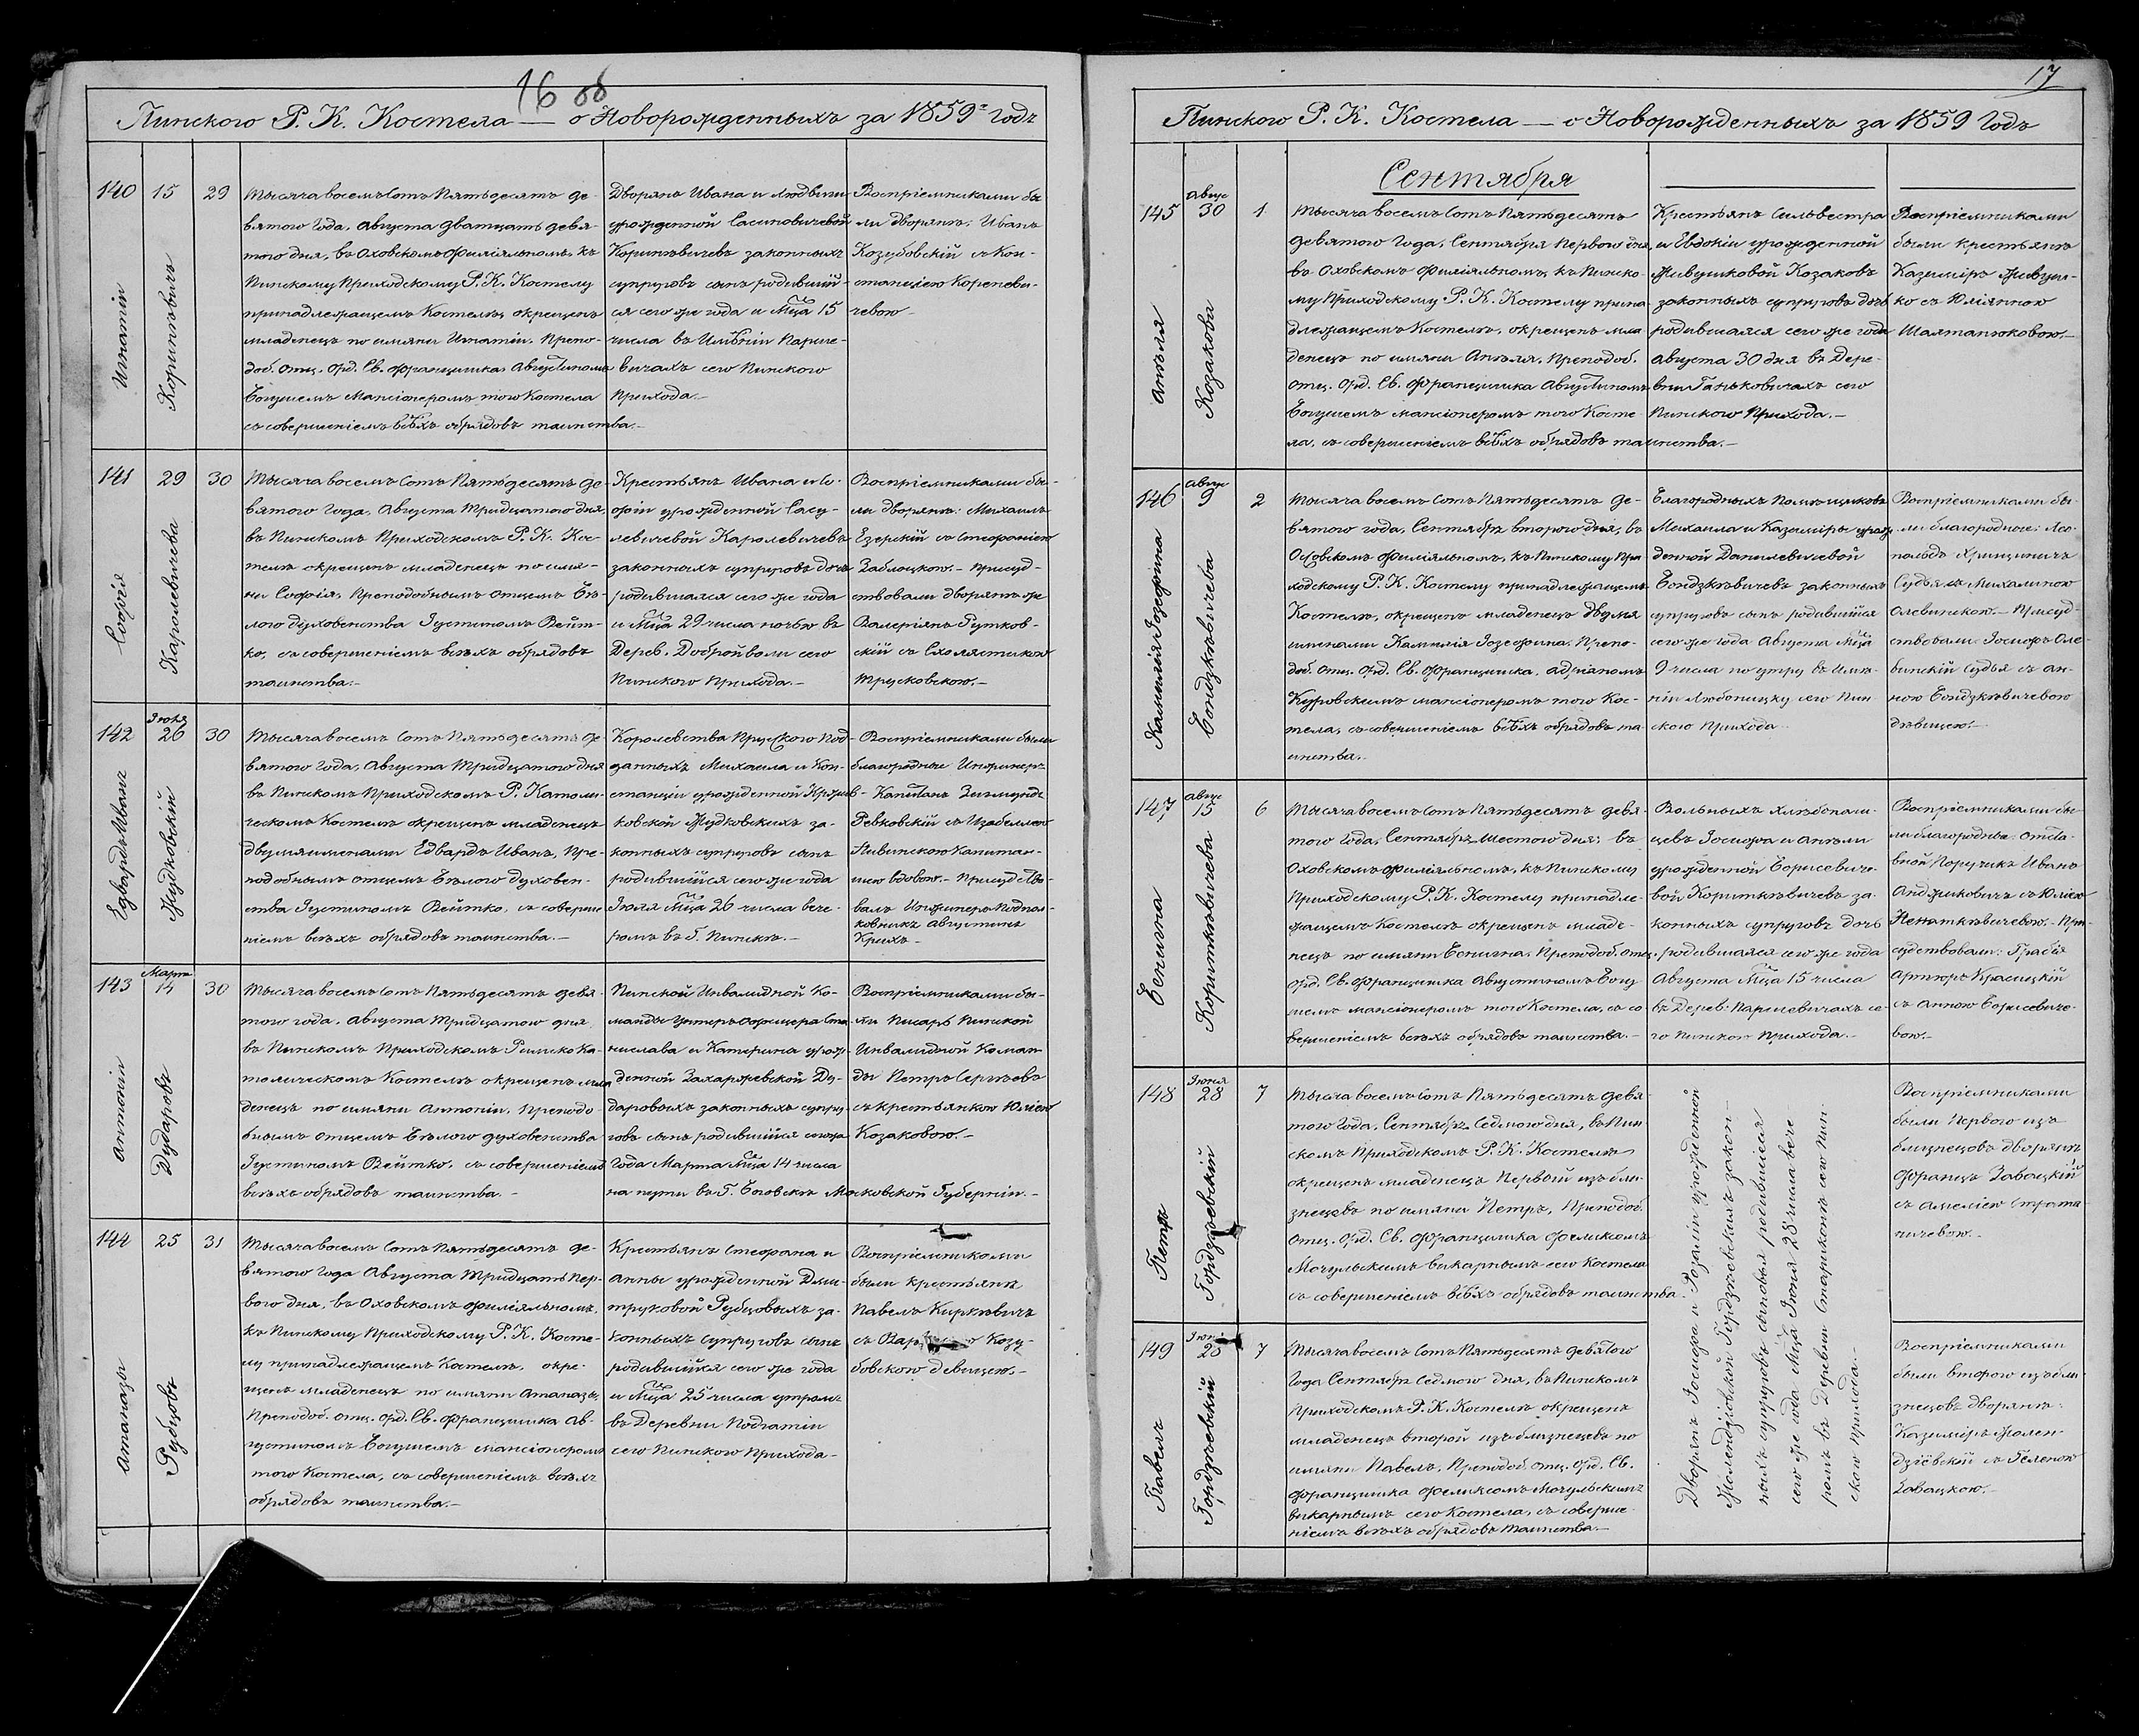 16 об
Пинского Р. К. Костела — о Новорожденныхъ за 1859 годъ
140
15
29
Игнатий
Кориткѣвичъ
Тысяча восемъ Сотъ Пятьдесятъ де-
вятого Года, Августа двадцать девя-
того дня, въ Оховскомъ Филіяльномъ, къ
Пинскому Приходскому Р. К. Костелу
принадлежащемъ Костелѣ, окрещенъ
младенецъ по имяни Игнатій, Препо-
доб. Отц. Орд. Св. Францишка Августиномъ
Богушемъ Мансіонеромъ того Костела
съ совершеніемъ всѣхъ обрядовъ таинства.—
Дворянъ Ивана и Людвики
урожденной Сасиновичевой
Кориткѣвичевъ законныхъ
супруговъ сынъ родивший-
ся сего же года и Мца 15
числа въ Имѣніи Парше-
вичахъ сего Пинского
Прихода.—
Воспріемниками бы-
ли дворяне: Иванъ
Козубовскій съ Кон-
станціею Кореневи-
чевою—
141
29
30
Софія
Каролевичева
Тысяча восемъ Сотъ Пятьдесятъ де-
вятого Года, Августа Тридцатого дня
въ Пинскомъ Приходскомъ Р. К. Кос-
телѣ окрещенъ младенецъ по имя-
ни Софія, Преподобнымъ отцемъ Бѣ-
лого духовенства Іустиномъ Вейт-
ко, съ совершеніемъ всѣхъ обрядовъ
таинства.—
Крестьянъ Ивана и Со-
фіи урожденной Сасу-
левичевой Каролевичевъ
законныхъ супруговъ дочь
родившаяся сего же года
и Мца 29 числа ночью въ
Дерев. Доброй воли сего
Пинского Прихода.—
Воспріемниками бы-
ли дворяне: Михаилъ
Езерскій съ Стефаніею
Заблоцкою.— Присуд-
ствовали дворяне же
Валеріянъ Гутков-
скій съ Схолястикою
Трусковскою.—
142
Іюля
26
30
Едвардъ Иванъ
Жудковскій
Тысяча восемъ Сотъ Пятьдесятъ де-
вятого Года, Августа Тридцатого дня
въ Пинскомъ Приходскомъ Р. Католи-
ческомъ Костелѣ окрещенъ младенецъ
двумя именами Едвардъ Иванъ, Пре-
подобнымъ отцемъ Бѣлого духовен-
ства Іустиномъ Вейтко, съ соверше-
ніемъ всѣхъ обрядовъ таинства.—
Королевства Прусского под-
данныхъ Михаила и Кон-
станціи урожденной
ковской Жудковскихъ за-
конныхъ супруговъ сынъ
родившійся сего же года
Іюля Мца 26 числа вече-
ромъ въ Г. Пинскѣ.—
Воспріемниками были
благородные Инженеръ
Капитанъ Зигмундъ
Ревковскій съ Изабеллею
Пивинскою Капитан-
шею вдовою.— Присудство-
валъ Инженеръ Подпол-
ковникъ Августинъ
143
Марта
14
30
Антоній
Дударовъ
Тысяча восемъ Сотъ Пятьдесятъ девя-
того года, Августа Тридцатого дня
въ Пинскомъ Приходскомъ Римско Ка-
толическомъ Костелѣ окрещенъ мла-
денецъ по имяни Антоній, Преподо-
бнымъ отцемъ Бѣлого духовенства
Іустиномъ Вейтко, съ совершеніемъ
всѣхъ обрядовъ таинства.—
Пинской Инвалидной Ко-
манды Унтеръ Офицера Ста-
нислава и Катерина урож-
денной Захаржевской Ду-
даровыхъ законныхъ супру-
говъ сынъ родившійся сего
Года Марта Мца 14 числа
на пути въ Г. Московской Губерніи.—
Воспріемниками бы-
ли Писарь Пинской
Инвалидной Коман-
ды Петръ Сергѣевъ
съ крестьянкою Юліею
Козаковою.—
144
25
31
Атаназы
Рубцовъ
Тысяча восемъ Сотъ Пятьдесятъ де-
вятого Года Августа Тридцать Пер-
вого дня, въ Оховскомъ Филіяльномъ,
къ Пинскому Приходскому Р. К. Косте-
лу принадлежащемъ Костелѣ, окре-
щенъ младенецъ по имяни Атаназы,
Преподоб. отц. Орд. Св. Францишка Ав-
густиномъ Богушемъ Мансіонеромъ
того Костела, съ совершеніемъ всѣхъ
обрядовъ таинства.—
Крестьянъ Стефана и
Анны урожденной Дми-
труковой Рубцовыхъ за-
конныхъ супруговъ сынъ
родившійся сего же года
и Мца 25 числа утромъ
въ Деревни Подгатіи
сего Пинского Прихода—
Воспріемниками
были крестьяне
Павелъ Киркѣвичъ
съ Козу-
бовскою девицею.—
17
Пинского Р. К. Костела — о Новорожденныхъ за 1859 Годъ
Сентября
145
Авгус
30
1
Анѣля
Козакова
Тысяча восемъ Сотъ Пятьдесятъ
девятого Года, Сентября Первого дня,
въ Оховскомъ Филіяльномъ, къ Пинско-
му Приходскому Р. К. Костелу прина-
длежащемъ Костелѣ, окрещенъ мла-
денецъ по имяни Анѣля, Преподоб.
отц. Орд. Св. Францишка Августиномъ
Богушемъ мансіонеромъ того Косте-
ла, съ совершеніемъ всѣхъ обрядовъ таинства.—
Крестьянъ Сильвестра
и Евдокіи урожденной
Живушковой Козаковъ
законныхъ супруговъ дочь
родившаяся сего же года
Августа 30 дня въ Дере-
вни Ганьковичахъ сего
Пинского Прихода.—
Воспріемниками
были крестьяне
Казиміръ Живуш-
ко съ Юліянною
Шалтанюковою.—
146
Авгус
9
2
Камилія Іозефина
Бондзкѣвичева
Тысяча восемъ Сотъ Пятьдесятъ де-
вятого года, Сентября второго дня, въ
Оховскомъ Филіяльномъ, къ Пинскому При-
ходскому Р. К. Костелу принадлежащемъ
Костелѣ, окрещенъ младенецъ двумя
именами Камилія Іозефина, Препо-
доб. отц. Орд. Св. Францишка, Адріаномъ
Куровскимъ мансіонеромъ того Кос-
тела, съ совершеніемъ всѣхъ обрядовъ та-
инства.—
Благородныхъ Помѣщиковъ
Михаила и Казиміры урож-
денной Данилевичевой
Бондзкѣвичевъ законныхъ
супруговъ сынъ родившійся
сего же года Августа Мца
9 числа по утру въ Имѣ-
ніи Любоницку сего Пин-
ского Прихода
Воспріемниками бы-
ли благородные: Лео-
польдъ
Судья съ Михалиною
Олевинскою.— Присуд-
ствовали: Іосифъ Оле-
винскій Судья съ Ан-
ною Бондзкѣвичевою
дѣвицею.—
147
Авгус
15
6
Бенигна
Кориткѣвичева
Тысяча восемъ Сотъ Пятьдесятъ девя-
того Года, Сентября шестого дня, въ
Оховскомъ Филіяльномъ, къ Пинскому
Приходскому Р. К. Костелу принадле-
жащемъ Костелѣ окрещенъ младе-
нецъ по имяни Бенигна, Преподоб. отц.
Орд. Св. Францишка Августиномъ Богу-
шемъ мансіонеромъ того Костела, съ со-
вершеніемъ всѣхъ обрядовъ таинства.—
Вольныхъ хлѣбопаш-
цевъ Іосифа и Анѣли
урожденной Борисевиче-
вой Кориткѣвичевъ за-
конныхъ супруговъ дочь
родившаяся сего же года
Августа Мца 15 числа
въ Дерев. Паршевичахъ се-
го Пинского Прихода.—
Воспріемниками бы-
ли благородные: отста-
вной Поручикъ Иванъ
Анджиковичъ съ Юліею
Игнаткѣвичевою.— При-
судствовали: Грабія
Артюръ Красицкій
съ Анною Борисевиче-
вою.—
148
Іюня
28
7
Петръ
Гордзѣевскій
Тысяча восемъ Сотъ Пятьдесятъ девя-
того Года, Сентября Седмого дня, въ Пин-
скомъ Приходскомъ Р. К. Костелѣ
окрещенъ младенецъ Первый изъ бли-
знецовъ по имяни Петръ, Преподоб.
Отц. Орд. Св. Францишка Феликсомъ
Мочульскимъ викарнымъ сего Костела
съ совершеніемъ всѣхъ обрядовъ таинства.
Дворянъ Іосифа и Розаліи урожденной
Жолендзіовской Гордзѣевскихъ закон-
ныхъ супруговъ сыновья родившіеся
сего же года Мца Іюня 28 числа вече-
ромъ въ Деревни Стариконѣ сего Пин-
ского прихода.—
Воспріемниками
были Первого изъ
близнецовъ дворяне
Францъ Завацкій
съ Амеліею
ничевою.—
149
28
7
Павелъ
Гордзѣевскій
Тысяча восемъ Сотъ Пятьдесятъ девятого
Года Сентября Седмого дня, въ Пинскомъ
Приходскомъ Р. К. Костелѣ окрещенъ
младенецъ второй изъ близнецовъ по
имяни Павелъ, Преподоб. отц. Орд. Св.
Францишка Феликсомъ Мочульскимъ
викарнымъ сего Костела, съ соверше-
ніемъ всѣхъ обрядовъ таинства.—
Воспріемниками
были второго изъ бли-
знецовъ дворяне:
Казиміръ Жолен-
дзіевскій съ Геленою
Завацкою.—